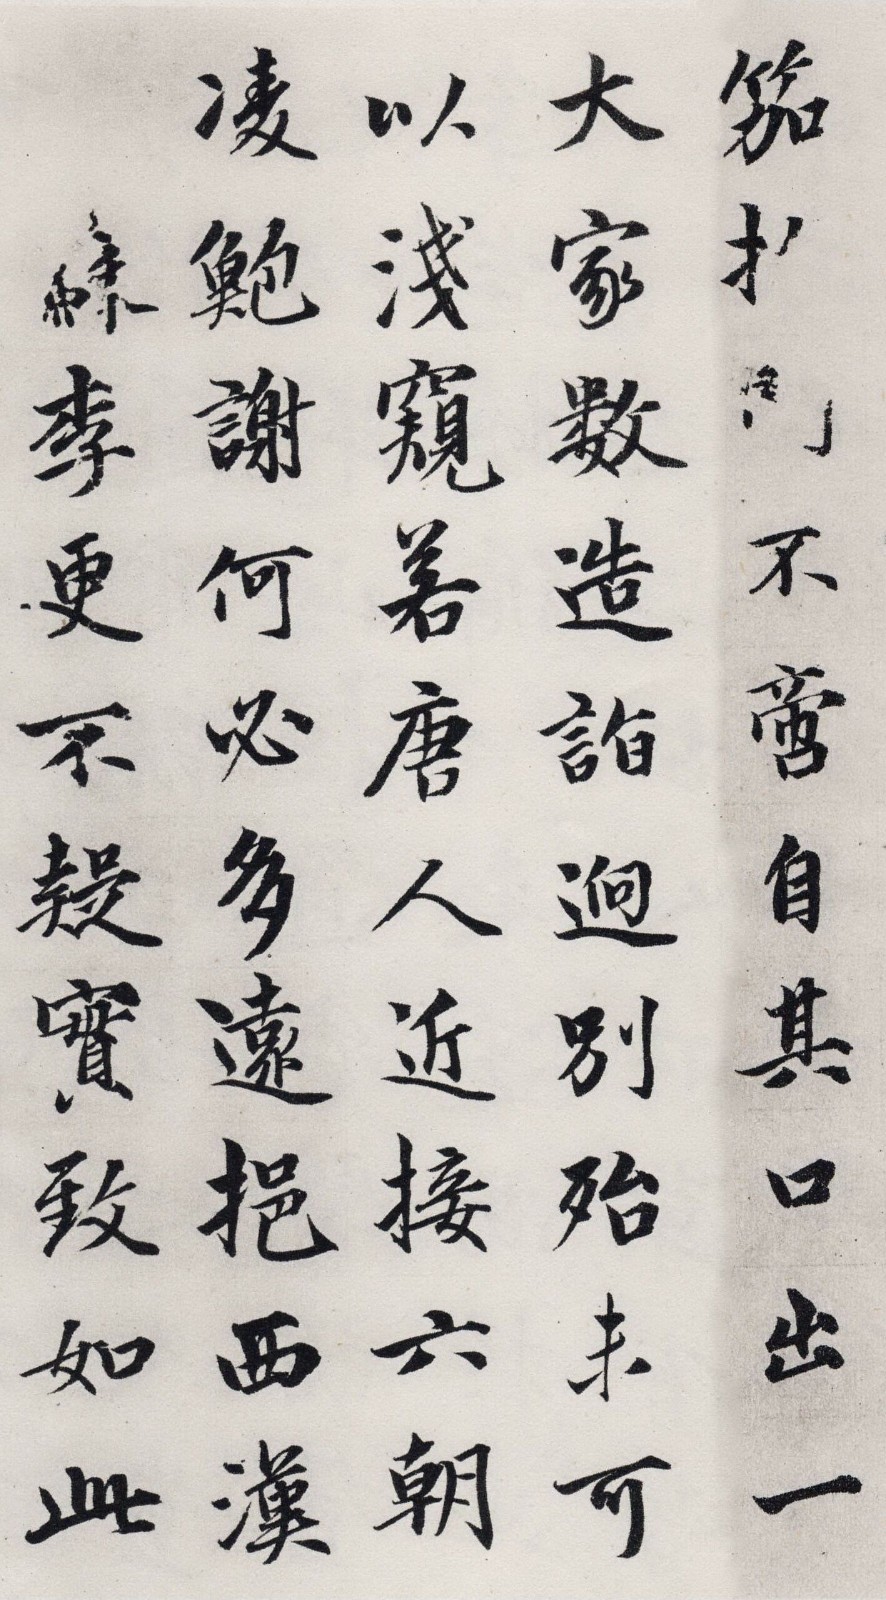 笳不啻自其口出一
大家數造詣迥別殆未可
以淺窺若唐人近接六朝
凌鮑謝何必多遠挹西漢
李更不實致如此